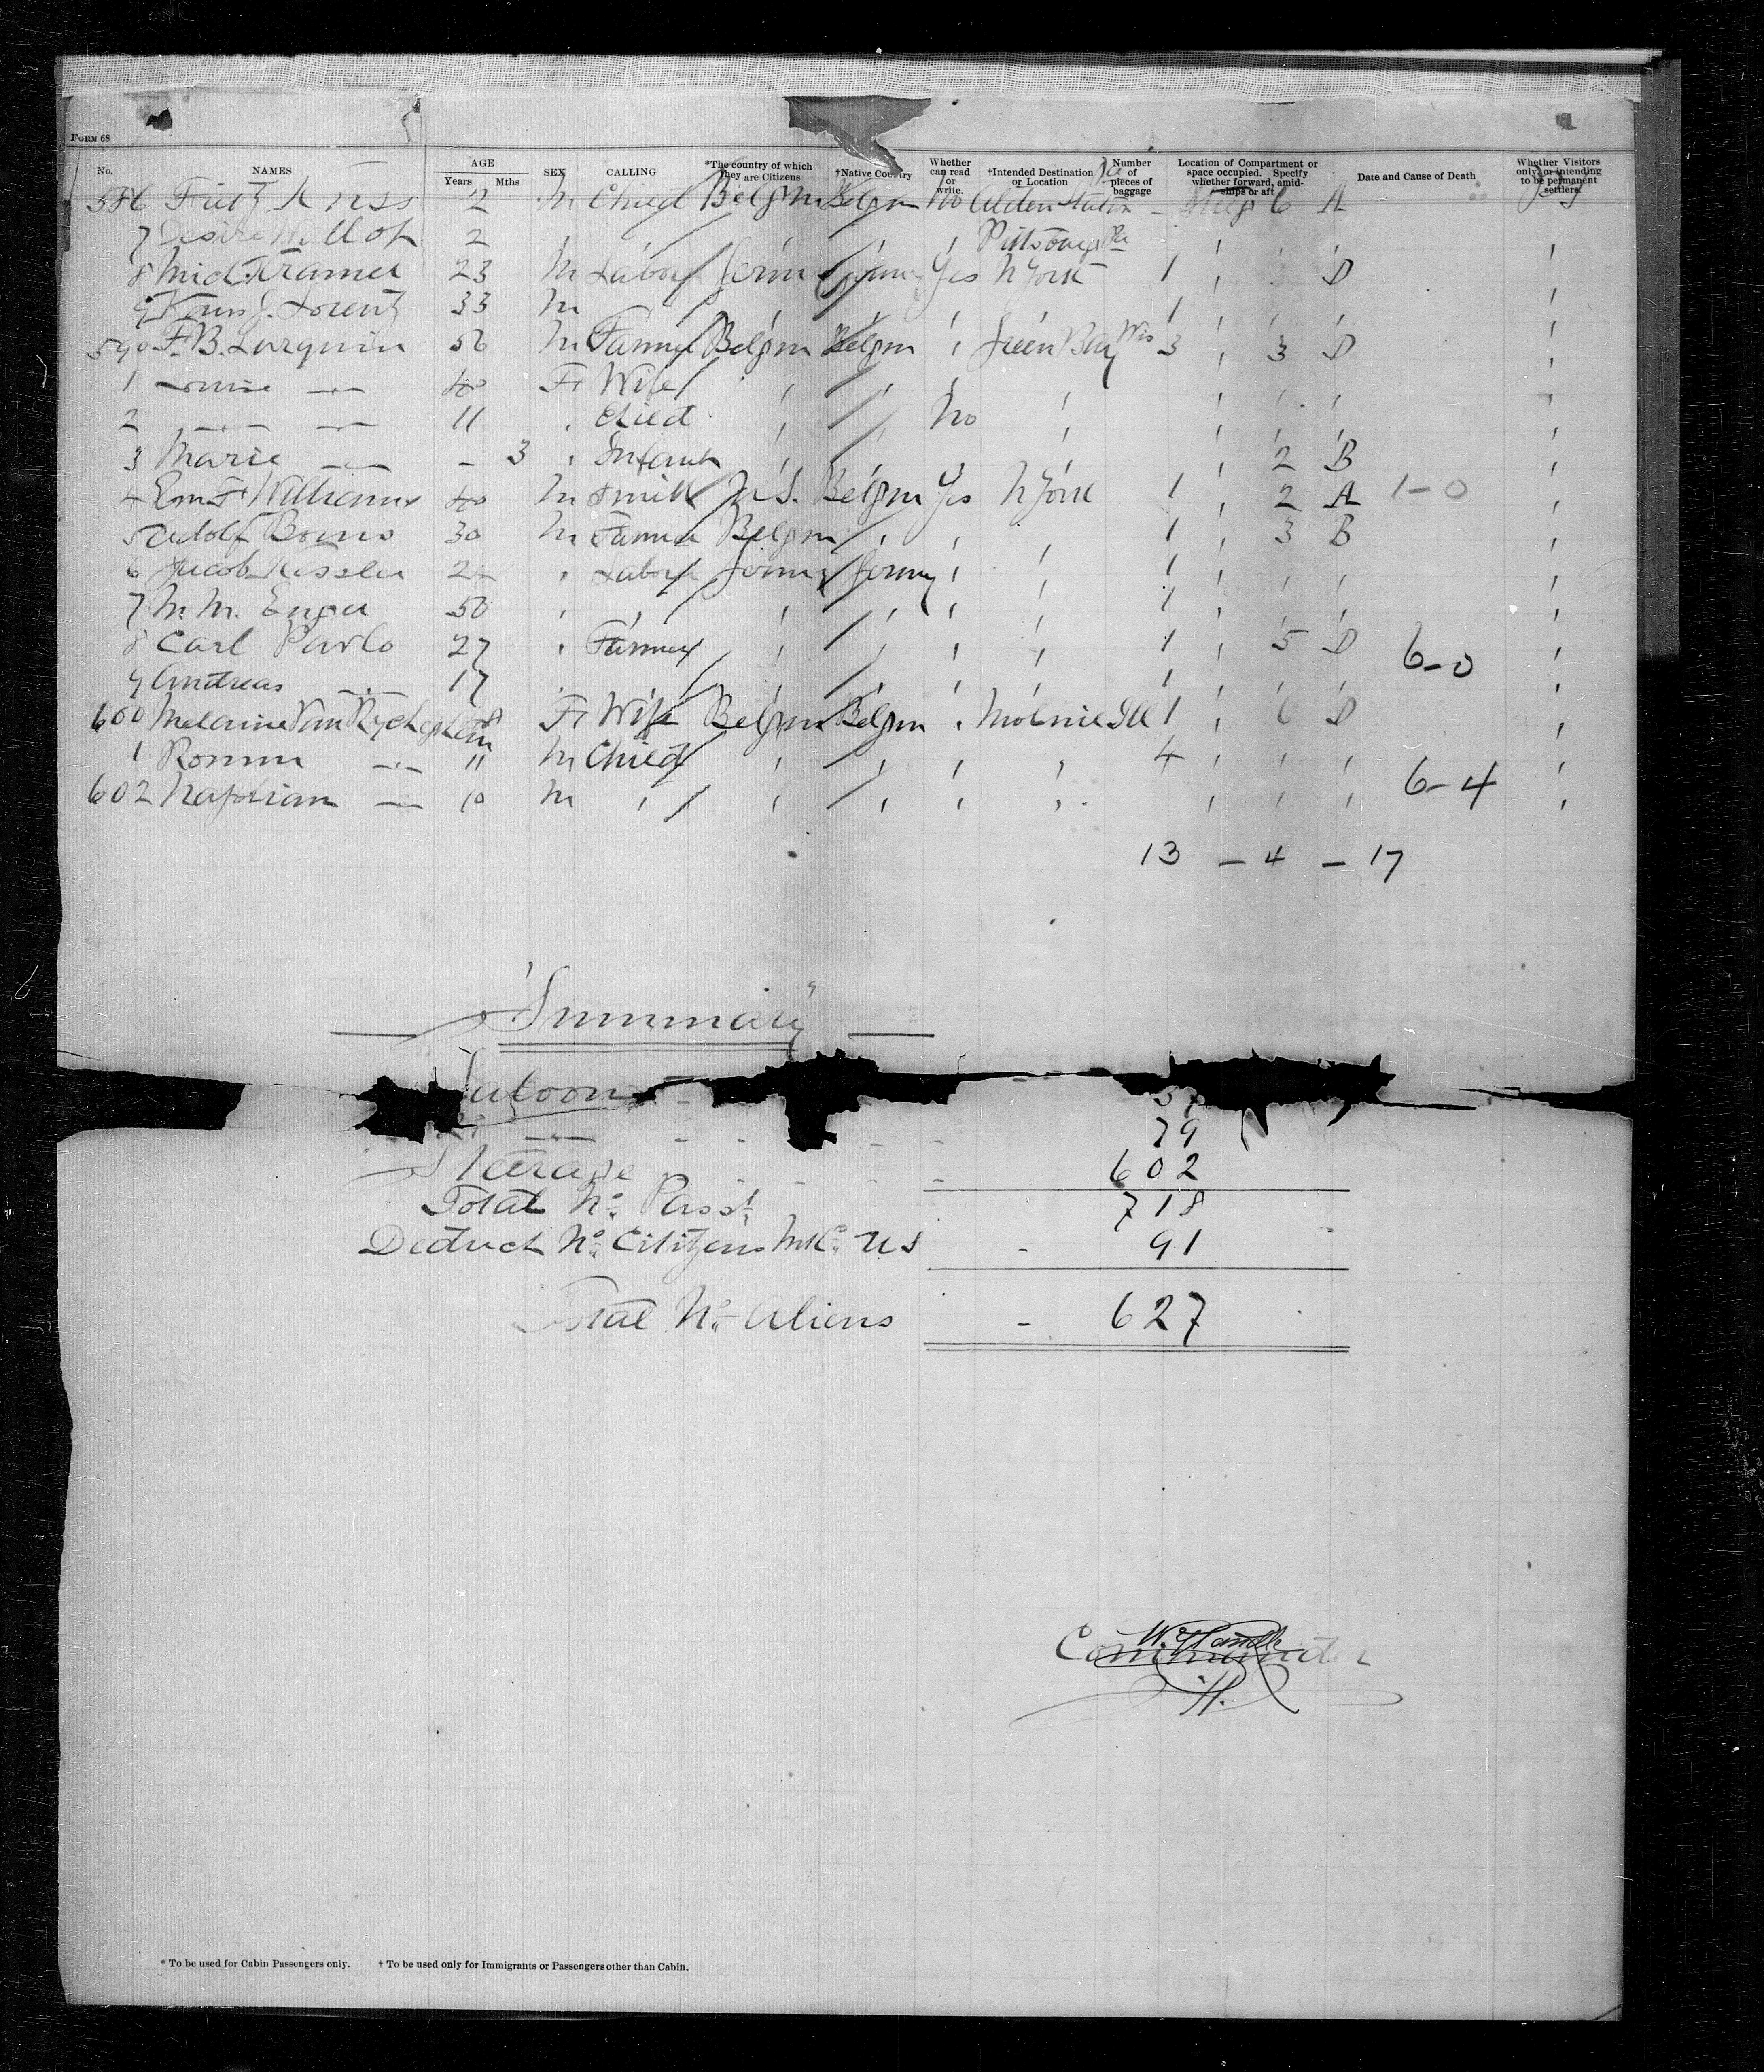 FORM 68
No. NAMES AGE Years Mths SEX CALLING *The country of which they are Citizens †Native Country Whether can read or write. †Intended Destination or Location Number of pieces of baggage Location of Compartment or space occupied. Specify whether forward, amidships or aft Date and Cause of Death Whether Visitors only, or intending to be permanent settlers
586 Fritz 2 M Child Belgm Belgm No Alden Station Pa 6 A
7 Desire Wallot 2 " Pittsburg Pa
8 Mich. Kramer 23 M Labor Germ Germ Yes N York 1 " D
9 J. Lorentz 33 M 1
590 F. B. Larquin 56 M Farmer Belgm Belgm " Green Bay Wis 3 " 3 D
1 Louise — " — 40 F Wife
2 — " — — " — 11 " Child No
3 Marie — " — - 3 " Infant 2 B
4 Em. F. Williams 40 M Smith U.S. Belgm Yes N York 1 2 A 1-0
5 Adolf Boms 30 M Farmer Belgm " " " 1 " 3 B
6 Jacob Kessler 24 " Labor Germy Germy " " 1
7 M. M. Enger 50 " " " " " " 1
8 Carl Pavlo 27 " Farmer " " " " 1 " 5 D 6-0
9 Andreas — " — 17 " " " " " " 1
600 Melanie Van Rycheghem 38 F Wife Belgm Belgm " Moline Ill 1 " 6 D
1 Romm — " — 11 M Child " " " " 4 " " "
602 Napolian — " — 10 M " " " " " " " " 6-4
13 - 4 - 17
"Summary"
Saloon
— " — 79
Steerage 602
Total No. Passt. 718
Deduct No. Citizens U S - 91
Total No. Aliens - 627
Commander
H.
* To be used for Cabin Passengers only. † To be used only for Immigrants or Passengers other than Cabin.